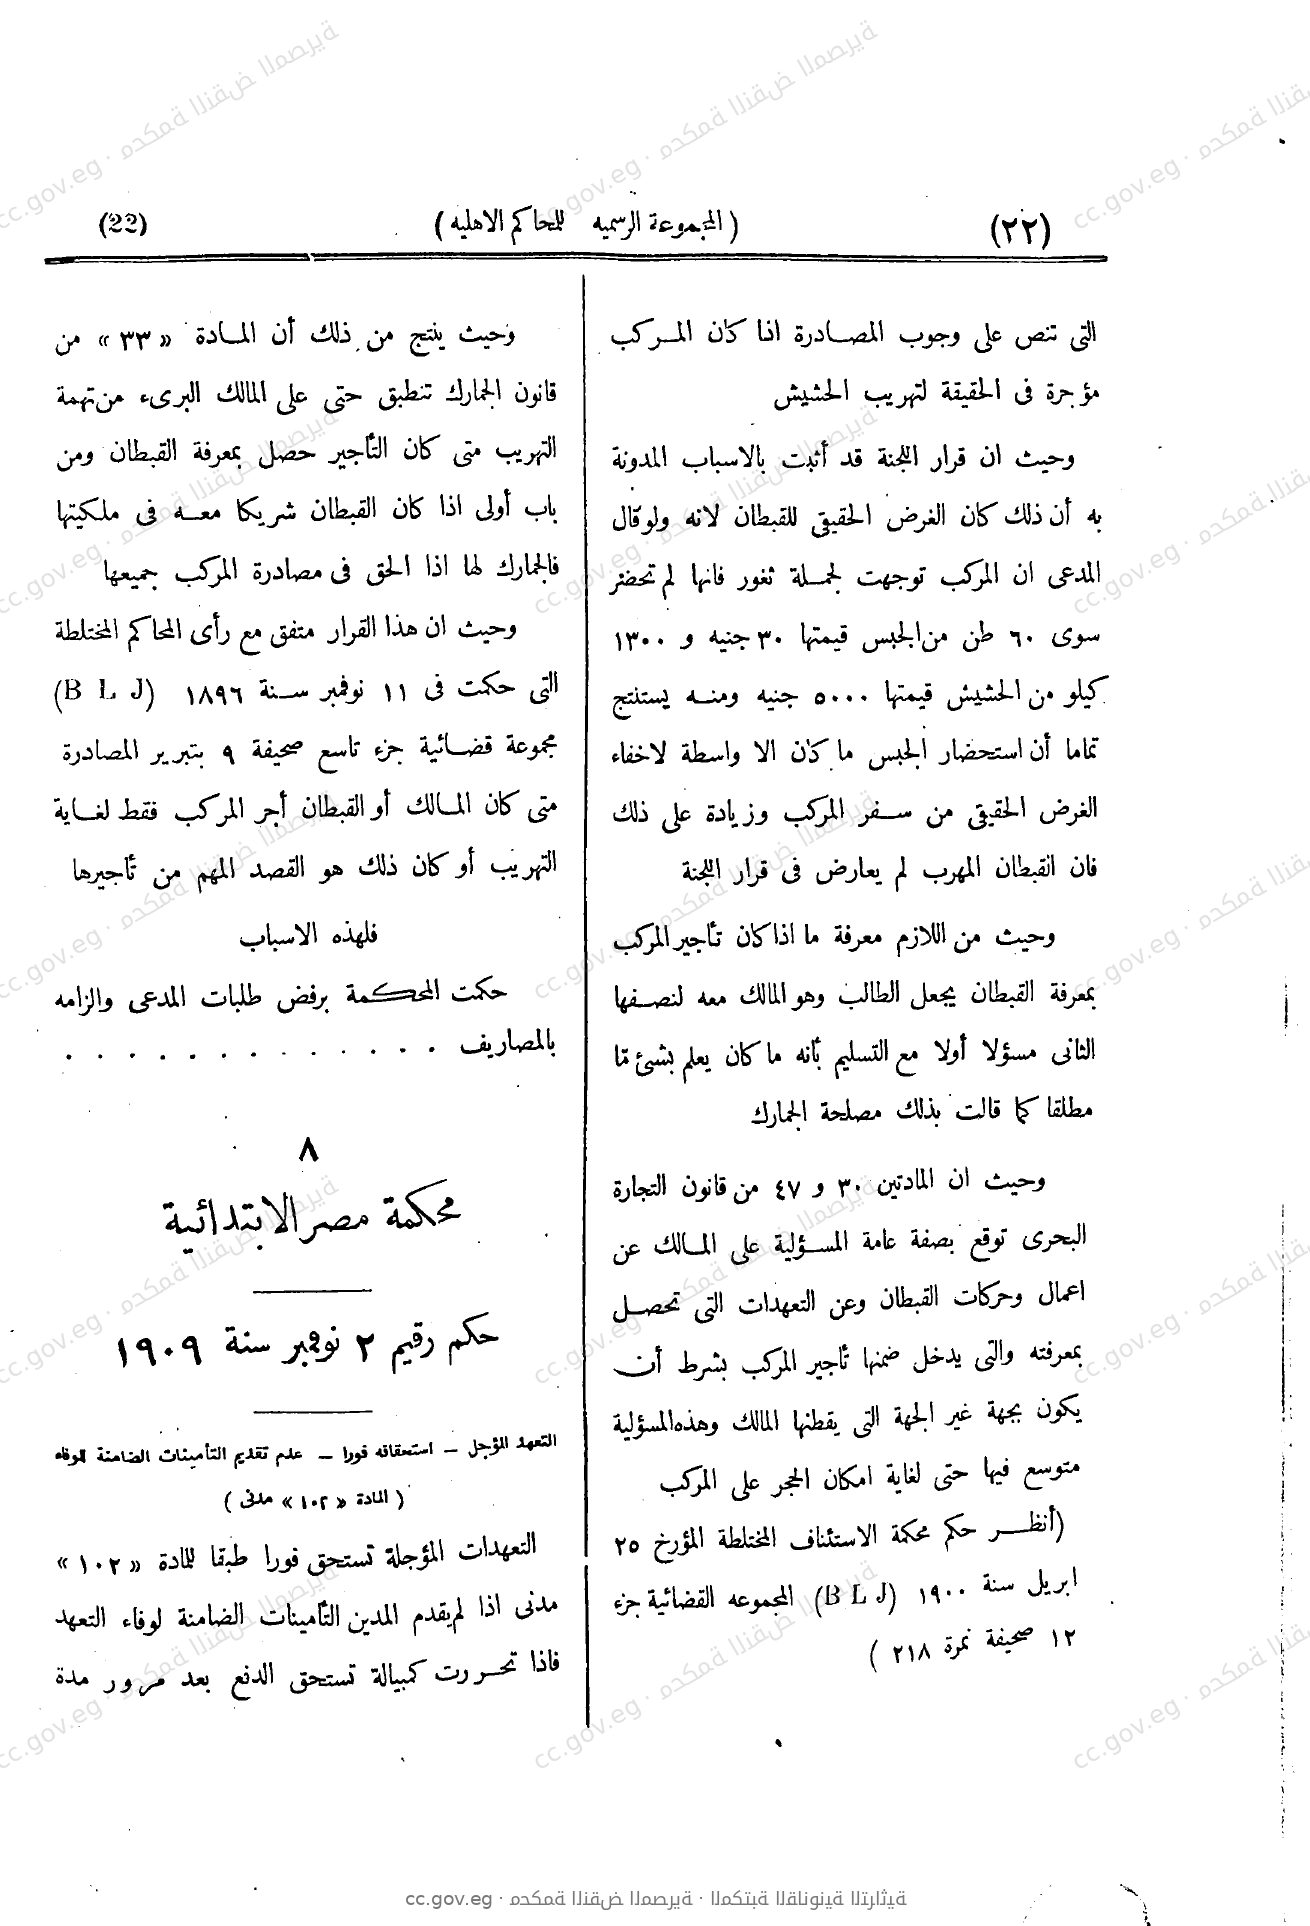 (٢٢) (المجموعة الرسميه للمحاكم الاهليه) (22)
التى تنص على وجوب المصادرة اذا كان المركب
مؤجرة فى الحقيقة لتهريب الحشيش
وحيث ان قرار اللجنة قد أثبت بالاسباب المدونة
به أن ذلك كان الغرض الحقيقى للقبطان لانه ولو قال
المدعى ان المركب توجهت لجملة ثغور فانها لم تحضر
سوى ٦٠ طن من الجبس قيمتها ٣٠ جنيه و ١٣٠٠
كيلو من الحشيش قيمتها ٥٠٠٠ جنيه ومنه يستنتج
تماما أن استحضار الجبس ما كان الا واسطة لاخفاء
الغرض الحقيقى من سفر المركب وزيادة على ذلك
فان القبطان المهرب لم يعارض فى قرار اللجنة
وحيث من اللازم معرفة ما اذا كان تأجير المركب
بمعرفة القبطان يجعل الطالب وهو المالك معه لنصفها
الثانى مسؤلا أولا مع التسليم بأنه ما كان يعلم بشئ مّا
مطلقا كما قالت بذلك مصلحة الجمارك
وحيث ان المادتين ٣٠ و ٤٧ من قانون التجارة
البحرى توقع بصفة عامة المسؤلية على المالك عن
اعمال وحركات القبطان وعن التعهدات التى تحصل
بمعرفته والتى يدخل ضمنها تأجير المركب بشرط أن
يكون بجهة غير الجهة التى يقطنها المالك وهذه المسؤلية
متوسع فيها حتى لغاية امكان الحجر على المركب
(أنظر حكم محكمة الاستئناف المختلطة المؤرخ ٢٥
ابريل سنة ١٩٠٠ (B L J) المجموعه القضائية جزء
١٢ صحيفة نمرة ٢١٨ )
وحيث ينتج من ذلك أن المادة «٣٣» من
قانون الجمارك تنطبق حتى على المالك البرىء من تهمة
التهريب متى كان التأجير حصل بمعرفة القبطان ومن
باب أولى اذا كان القبطان شريكا معه فى ملكيتها
فالجمارك لها اذا الحق فى مصادرة المركب جميعها
وحيث ان هذا القرار متفق مع رأى المحاكم المختلطة
التى حكمت فى ١١ نوفمبر سنة ١٨٩٦ (B L J)
مجموعة قضائية جزء تاسع صحيفة ٩ بتبرير المصادرة
متى كان المالك أو القبطان أجر المركب فقط لغاية
التهريب أو كان ذلك هو القصد المهم من تأجيرها
فلهذه الاسباب
حكمت المحكمة برفض طلبات المدعى والزامه
بالمصاريف . . . . . . . . . . . . .
٨
محكمة مصر الابتدائية
حكم رقيم ٢ نوفمبر سنة ١٩٠٩
التعهد المؤجل — استحقاقه فورا — عدم تقديم التأمينات الضامنة للوفاء
( المادة «١٠٢» مدنى )
التعهدات المؤجلة تستحق فورا طبقا للمادة «١٠٢»
مدنى اذا لم يقدم المدين التأمينات الضامنة لوفاء التعهد
فاذا تحررت كمبيالة تستحق الدفع بعد مرور مدة
cc.gov.eg · محكمة النقض المصرية · المكتبة القانونية التراثية